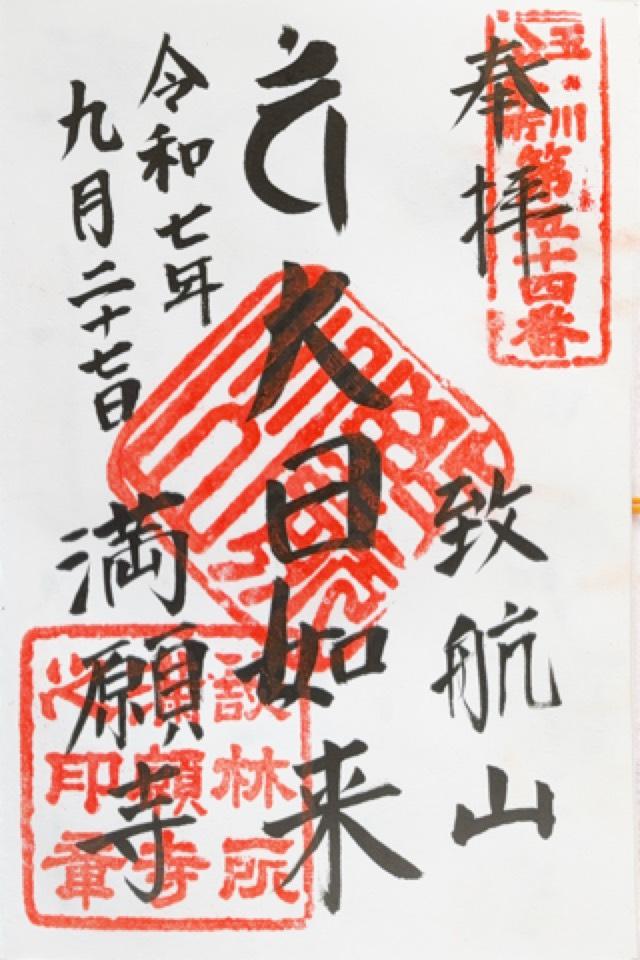 奉拝
致航山
玉川
第五十四番
大日如来
令和七年
九月二十七日
満願寺
談林所
満願寺
之印章